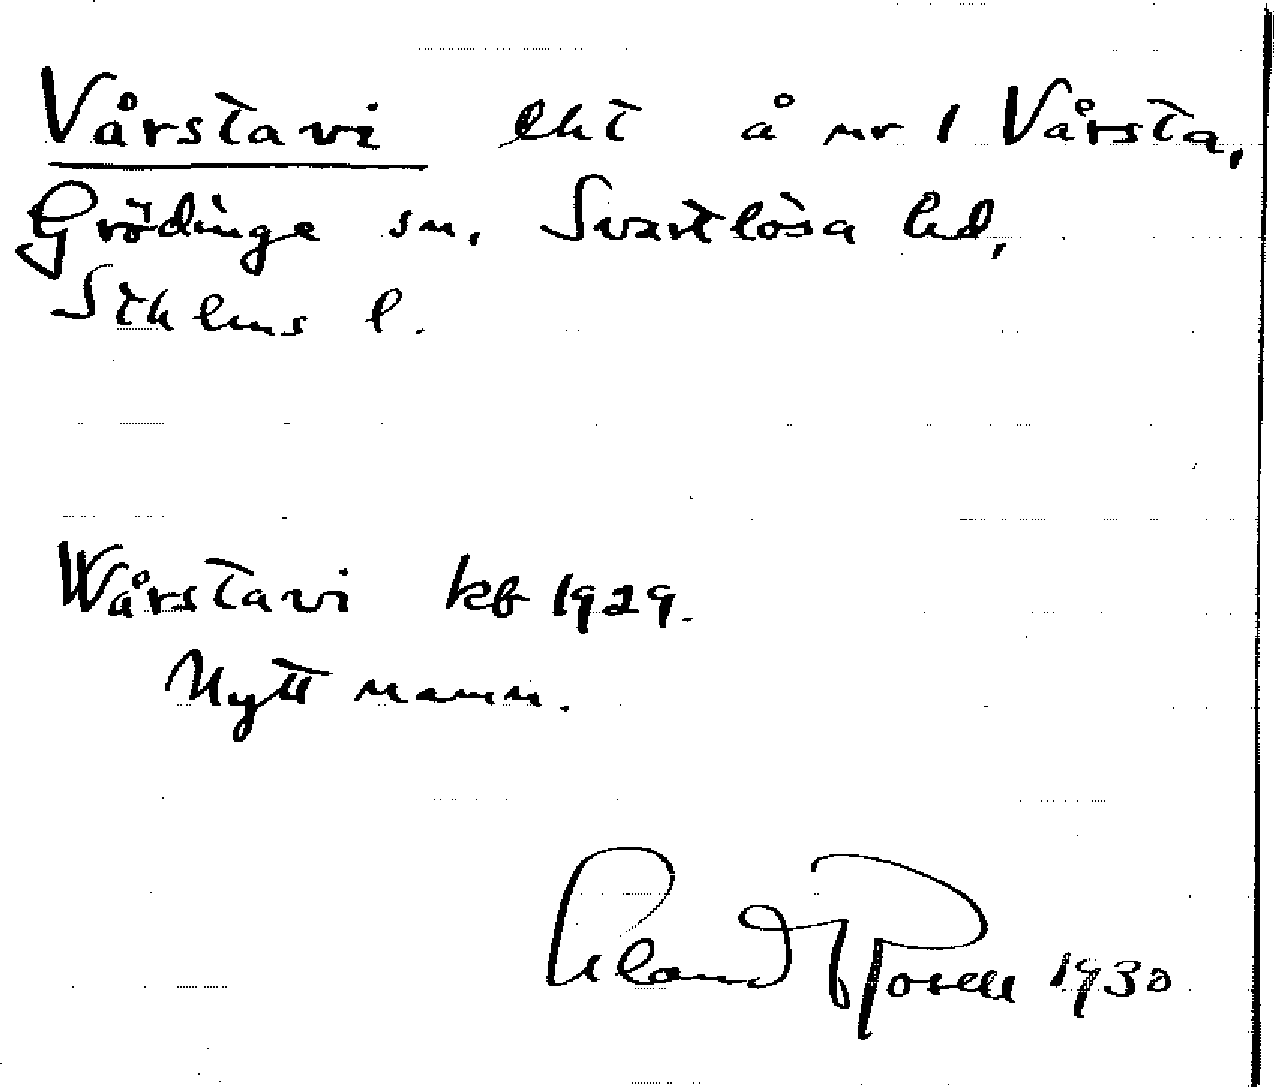 Vårstavi lht å nr 1 Vårsta,
Grödinge sn, Svartlösa hd,
Sthlms l.
Wårstavi kb 1929.
Nytt namn.
1930